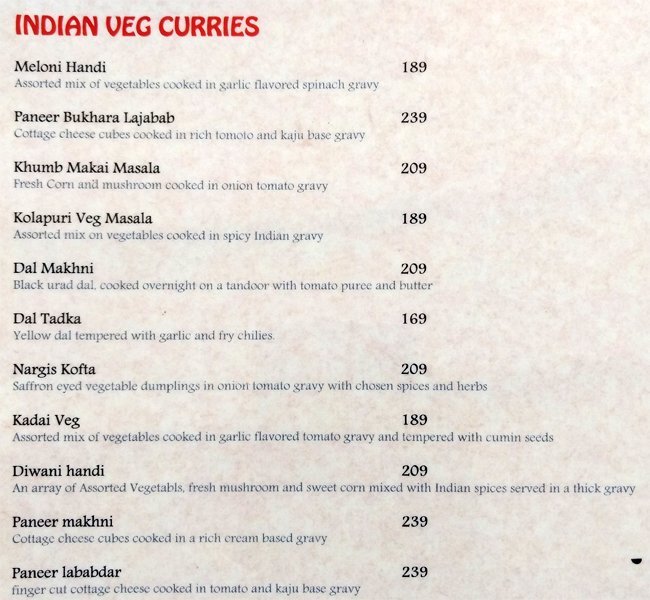 INDIAN VEG CURRIES
Meloni Handi 189
Assorted mix of vegetables cooked in garlic flavored spinach gravy
Paneer Bukhara Lajabab 239
Cottage cheese cubes cooked in rich tomoto and kaju base gravy
Khumb Makai Masala 209
Fresh Corn and mushroom cooked in onion tomato gravy
Kolapuri Veg Masala 189
Assorted mix on vegetables cooked in spicy Indian gravy
Dal Makhni 209
Black urad dal, cooked overnight on a tandoor with tomato puree and butter
Dal Tadka 169
Yellow dal tempered with garlic and fry chilies.
Nargis Kofta 209
Saffron eyed vegetable dumplings in onion tomato gravy with chosen spices and herbs
Kadai Veg 189
Assorted mix of vegetables cooked in garlic flavored tomato gravy and tempered with cumin seeds
Diwani handi 209
An array of Assorted Vegetabls, fresh mushroom and sweet corn mixed with Indian spices served in a thick gravy
Paneer makhni 239
Cottage cheese cubes cooked in a rich cream based gravy
Paneer lababdar 239
finger cut cottage cheese cooked in tomato and kaju base gravy